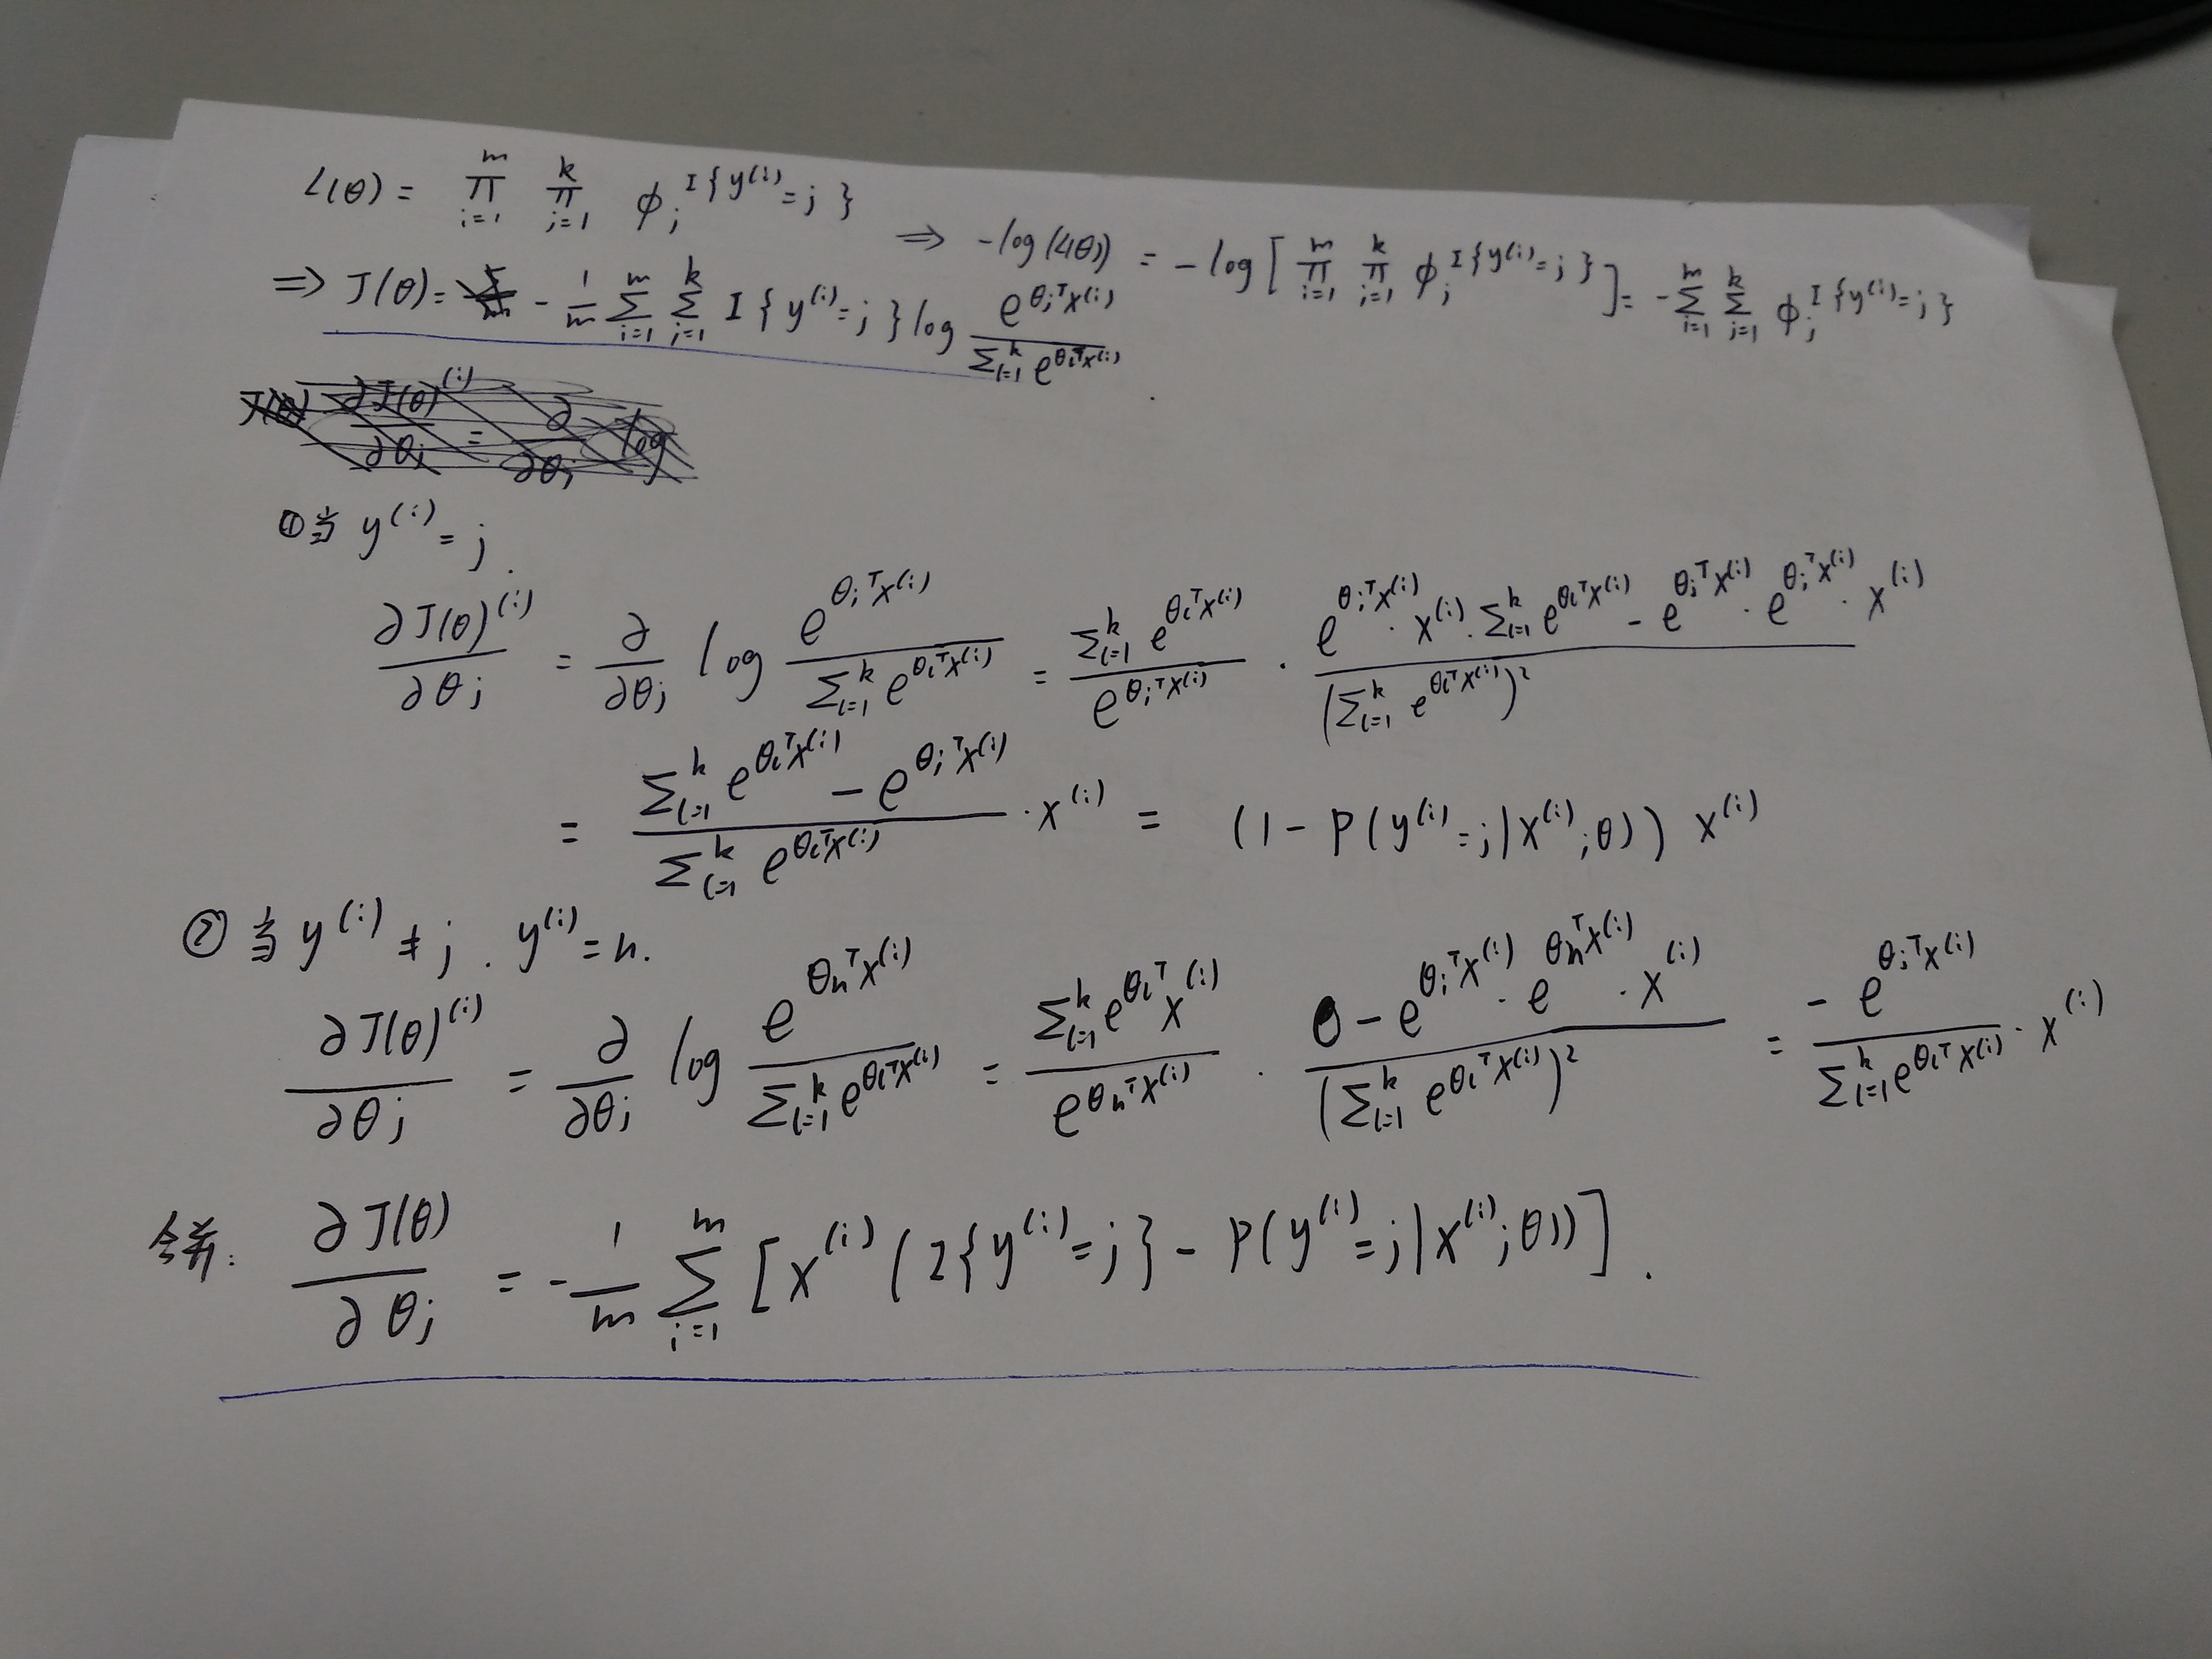 L(θ) = ∏_{i=1}^{m} ∏_{j=1}^{k} φ_j^{I{y^{(i)}=j}} ⟹ -log(L(θ)) = -log[∏_{i=1}^{m} ∏_{j=1}^{k} φ_j^{I{y^{(i)}=j}}] = -∑_{i=1}^{m} ∑_{j=1}^{k} φ_j^{I{y^{(i)}=j}}
⟹ J(θ) = -\frac{1}{m} ∑_{i=1}^{m} ∑_{j=1}^{k} I{y^{(i)}=j} log \frac{e^{θ_j^T x^{(i)}}}{∑_{l=1}^{k} e^{θ_l^T x^{(i)}}}
①当 y^{(i)} = j.
\frac{∂J(θ)^{(i)}}{∂θ_j} = \frac{∂}{∂θ_j} log \frac{e^{θ_j^T x^{(i)}}}{∑_{l=1}^{k} e^{θ_l^T x^{(i)}}} = \frac{∑_{l=1}^{k} e^{θ_l^T x^{(i)}}}{e^{θ_j^T x^{(i)}}} · \frac{e^{θ_j^T x^{(i)}} · x^{(i)} · ∑_{l=1}^{k} e^{θ_l^T x^{(i)}} - e^{θ_j^T x^{(i)}} · e^{θ_j^T x^{(i)}} · x^{(i)}}{(∑_{l=1}^{k} e^{θ_l^T x^{(i)}})^2}
= \frac{∑_{l=1}^{k} e^{θ_l^T x^{(i)}} - e^{θ_j^T x^{(i)}}}{∑_{l=1}^{k} e^{θ_l^T x^{(i)}}} · x^{(i)} = (1 - P(y^{(i)}=j|x^{(i)};θ)) x^{(i)}
②当 y^{(i)} ≠ j. y^{(i)} = n.
\frac{∂J(θ)^{(i)}}{∂θ_j} = \frac{∂}{∂θ_j} log \frac{e^{θ_n^T x^{(i)}}}{∑_{l=1}^{k} e^{θ_l^T x^{(i)}}} = \frac{∑_{l=1}^{k} e^{θ_l^T x^{(i)}}}{e^{θ_n^T x^{(i)}}} · \frac{0 - e^{θ_j^T x^{(i)}} · e^{θ_n^T x^{(i)}} · x^{(i)}}{(∑_{l=1}^{k} e^{θ_l^T x^{(i)}})^2} = \frac{-e^{θ_j^T x^{(i)}}}{∑_{l=1}^{k} e^{θ_l^T x^{(i)}}} · x^{(i)}
合并: \frac{∂J(θ)}{∂θ_j} = -\frac{1}{m} ∑_{i=1}^{m} [x^{(i)} (I{y^{(i)}=j} - P(y^{(i)}=j|x^{(i)};θ))].